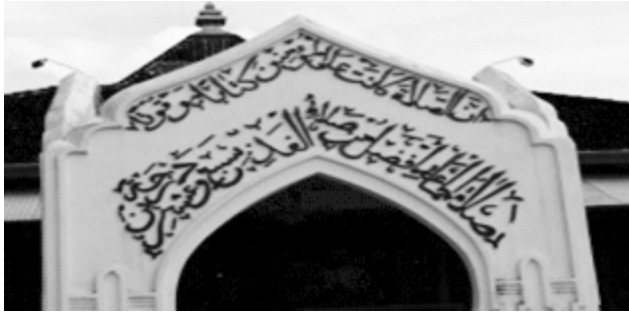 ان الصلاة كانت على المؤمنين كتابا موقوتا
صلاة الجماعة افضل من صلاة الفذ بسبع وعشرين درجة